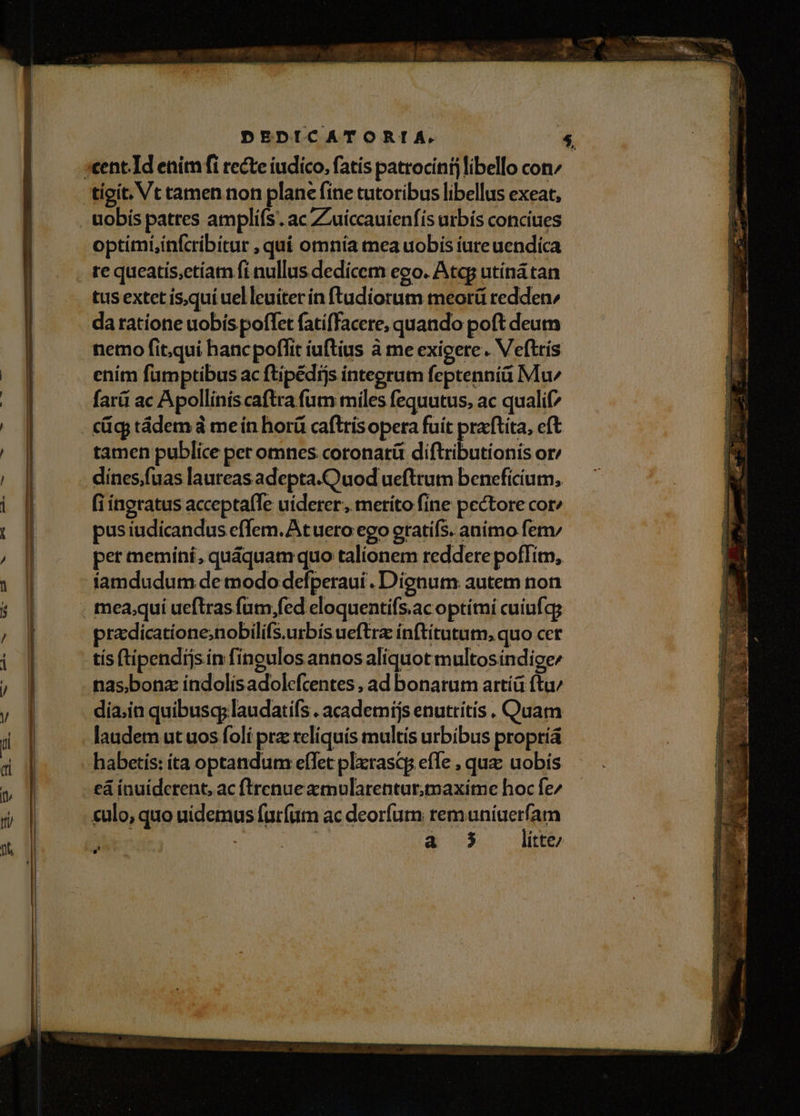 DEDICATORIA. 4
cent. Id enim ſi recte iudico, ſatis patrocinĳ libello con⸗
tigit. Vt tamen non plane ſine tutoribus libellus exeat,
uobis patres ampliſs. ac Zuiccauienſis urbis conciues
optimi, inſcribitur, qui omnia mea uobis iure uendica
re queatis, etiam ſi nullus dedicem ego. Atqꝫ utinā tan
tus extet is, qui uel leuiter in ſtudiorum meorū redden⸗
da ratione uobis poſſet ſatiſfacere, quando poſt deum
nemo ſit, qui hanc poſſit iuſtius à me exigere. Veſtris
enim ſumptibus ac ſtipēdĳs integrum ſeptenniū Mu⸗
ſarū ac Apollinis caſtra ſum miles ſequutus, ac qualiſ⸗
cūqꝫ tādem à me in horū caſtris opera fuit præſtita, eſt
tamen publice per omnes coronarū diſtributionis or⸗
dines, ſuas laureas adepta. Quod ueſtrum beneficium,
ſi ingratus acceptaſſe uiderer, merito ſine pectore cor⸗
pus iudicandus eſſem. At uero ego gratiſs. animo ſem⸗
per memini, quāquam quo talionem reddere poſſim,
iamdudum de modo deſperaui. Dignum autem non
mea, qui ueſtras ſum, ſed eloquentiſs. ac optimi cuiuſqꝫ
prædicatione, nobiliſs. urbis ueſtræ inſtitutum, quo cer
tis ſtipendĳs in ſingulos annos aliquot multos indige⸗
nas, bonæ indolis adoleſcentes, ad bonarum artiū ſtu⸗
dia, in quibusqꝫ laudatiſs. academĳs enutritis. Quam
laudem ut uos ſoli præ reliquis multis urbibus propriā
habetis: ita optandum eſſet plærasqꝫ eſſe, quæ uobis
eā inuiderent, ac ſtrenue æmularentur, maxime hoc ſe⸗
culo, quo uidemus ſurſum ac deorſum rem uniuerſam
a 3 litte⸗